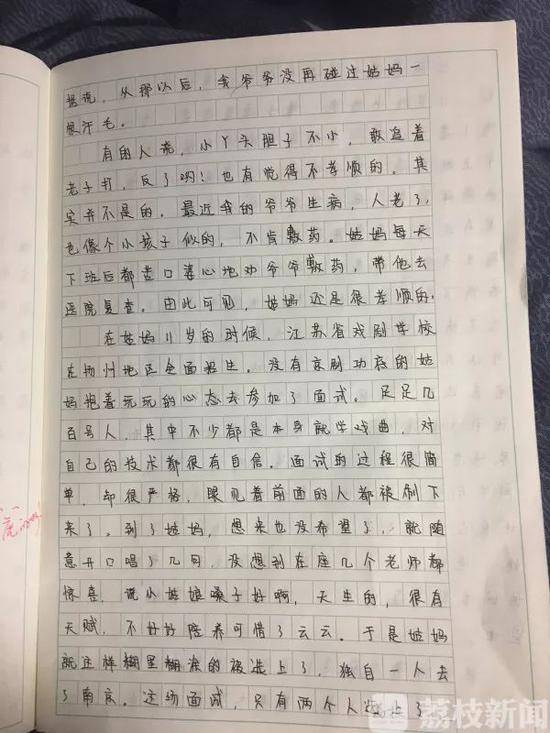 据说，从那以后，我爷爷没再碰过姑妈一
根汗毛。
有的人说，小丫头胆子不小，敢追着
老子打，反了哟！也有觉得不孝顺的。其
实并不是的。最近我的爷爷生病，人老了，
也像个小孩子似的，不肯敷药。姑妈每天
下班后都苦口婆心地劝爷爷敷药，带他去
医院复查。由此可见，姑妈还是很孝顺的。
在姑妈11岁的时候，江苏省戏剧学校
在扬州地区全面招生。没有京剧功底的姑
妈抱着玩玩的心态去参加了面试。足足几
百号人，其中不少都是本身就学戏曲，对
自己的技术都很有自信。面试的过程很简
单，却很严格，眼见着前面的人都被刷下
来了，到了姑妈，想来也没希望了，就随
意开口唱了几句，没想到在座几个老师都
惊喜，说小姑娘嗓子好啊，天生的，很有
天赋，不好好陪养可惜了云云。于是姑妈
就这样糊里糊涂的被选上了，独自一人去
了南京。这场面试，只有两个人选上了
荔枝新闻